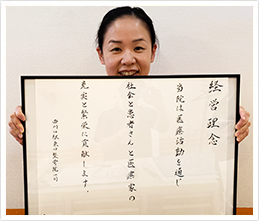 経営理念
当院は医療活動を通じ
社会と患者さんと医療家の
充実と繁栄に貢献します。
西川口駅東口整骨院